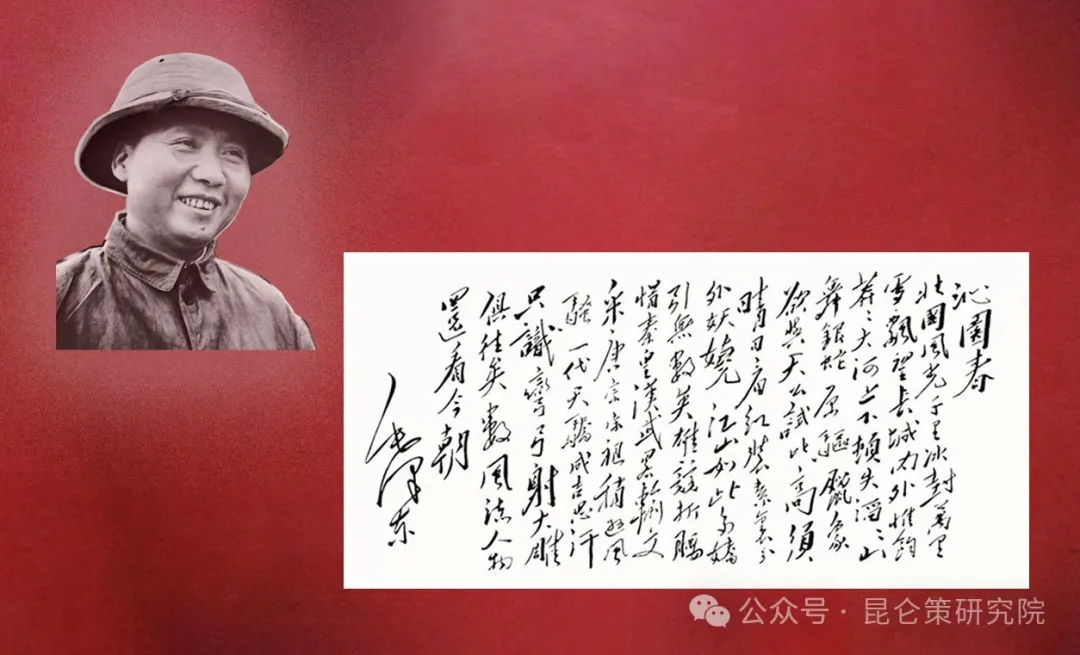 沁園春
北國風光千里冰封萬里
雪飄望長城内外惟餘
莽々大河上下頓失滔々山
舞銀蛇原驅臘象
欲與天公試比高須
晴日看红裝素裹分
外妖嬈江山如此多嬌
引無數英雄競折腰
惜秦皇漢武畧輸文
采唐宗宋祖稍遜風
騷一代天驕成吉思汗
只識彎弓射大雕
俱往矣數風流人物
還看今朝
毛澤东
公众号·昆仑策研究院